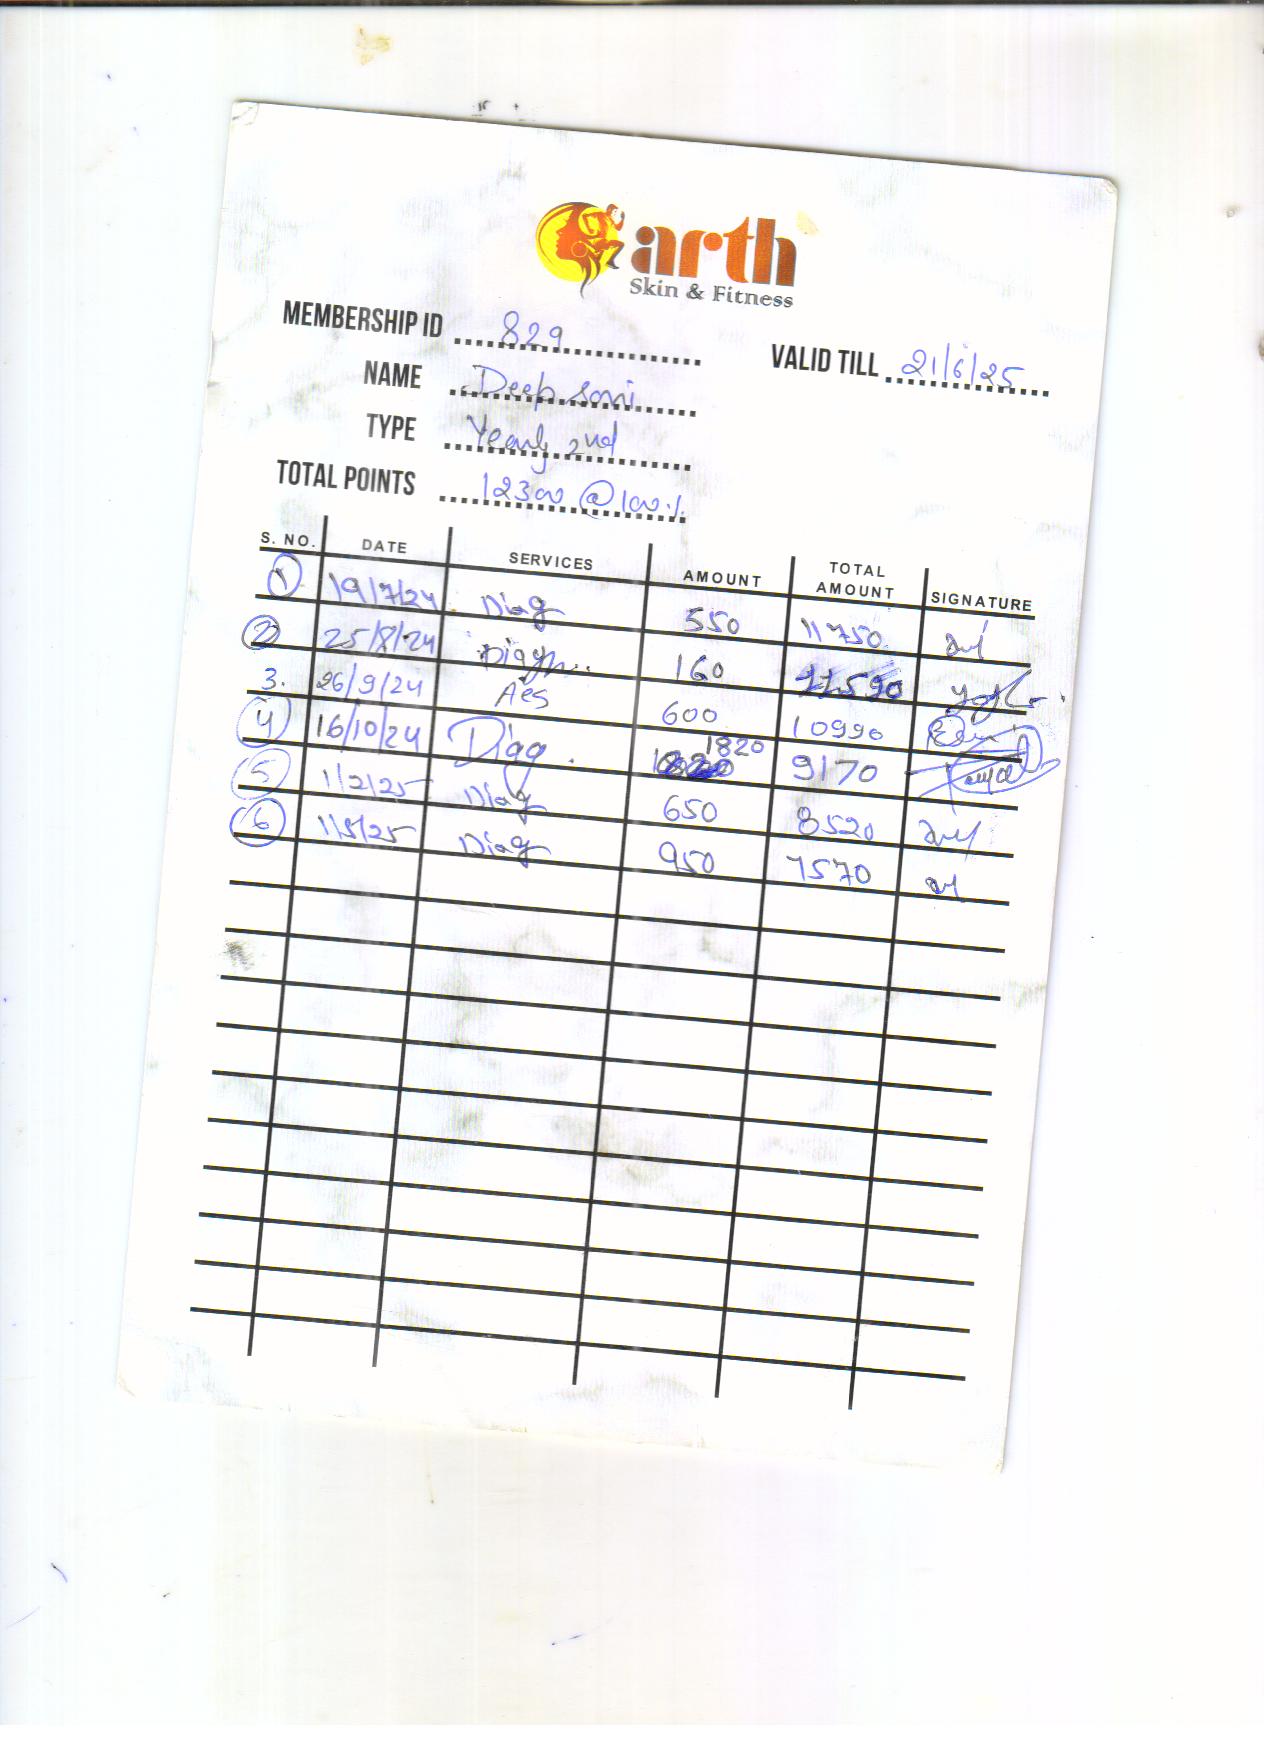 arth
Skin & Fitness
MEMBERSHIP ID 829
VALID TILL 21/6/25
NAME Deep Soni
TYPE Yearly 2nd
TOTAL POINTS 12300 @ 100%
S. NO. DATE SERVICES AMOUNT TOTAL AMOUNT SIGNATURE
1 19/7/24 Diag 550 11750
2 25/8/24 160 11590
3. 26/9/24 Aes 600 10990
4 16/10/24 Diag. 1820 9170
5 1/2/25 Diag 650 8520
6 1/5/25 Diag 950 7570